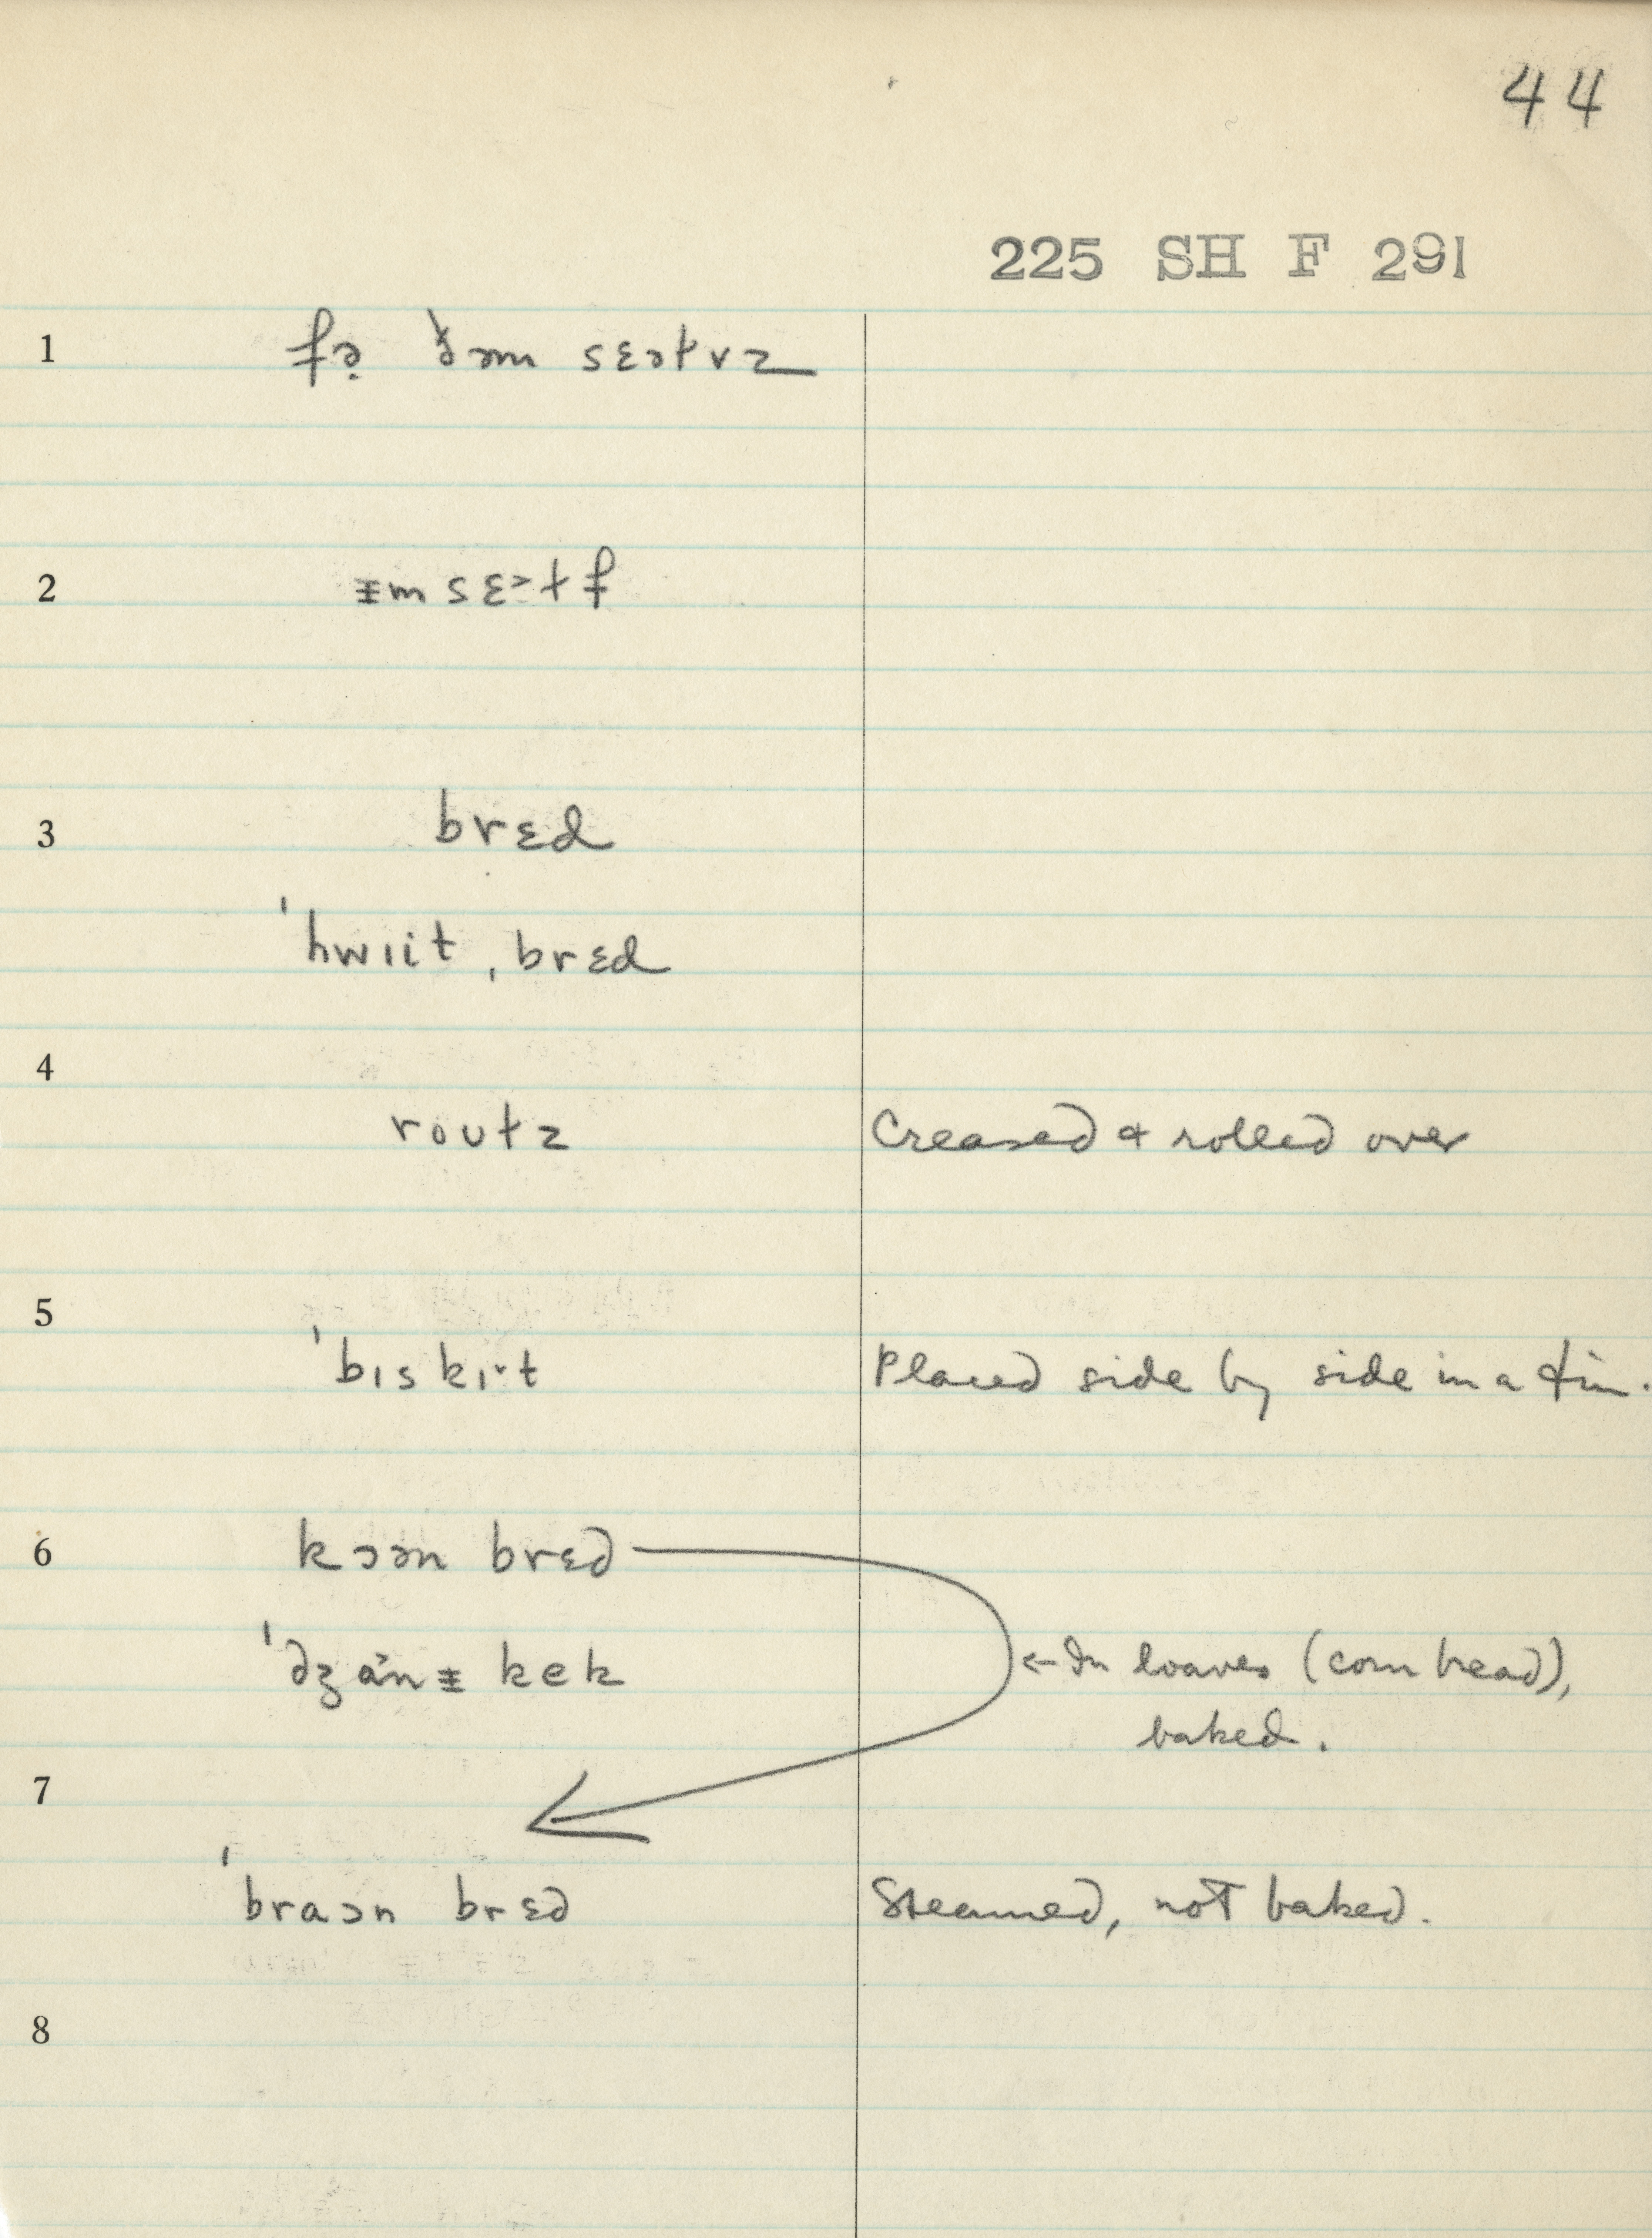 44
225 SH F 291
1 fə̣ ðəm sɛəɫvz
2 ᵻmsɛɫf
3 brɛd
ˈhwɪit ˌbrɛd
4
roʊɫz Creased & rolled over
5
ˈbɪskɪ˔t Placed side by side in a tin.
6 kɔən brɛd
ˈdʒa˃nᵻ kek ← In loaves (corn bread),
baked.
7
ˈbraɔn brɛd Steamed, not baked.
8